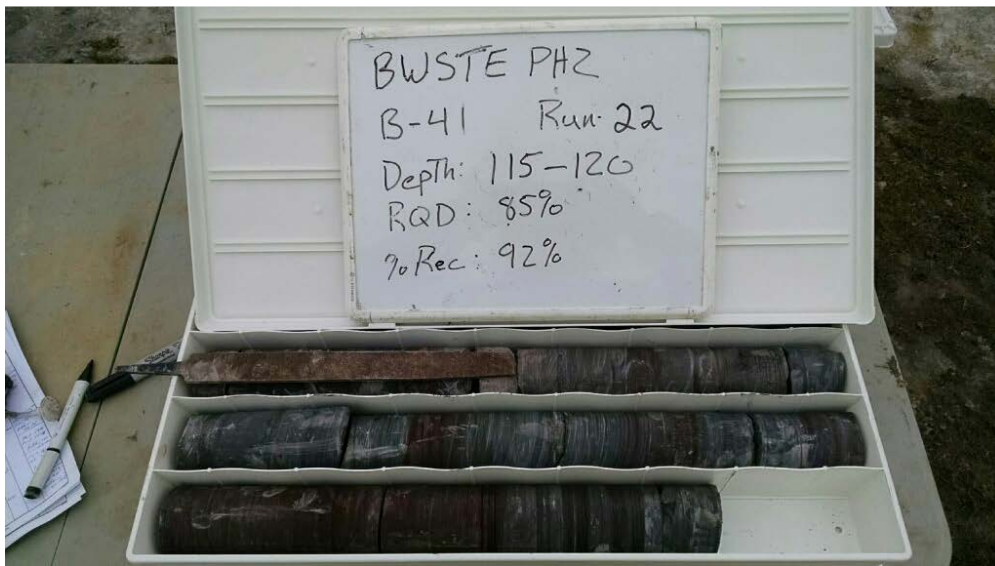 BWSTE PH2
B-41 Run: 22
Depth: 115-120
RQD: 85%
% Rec: 92%
Sharpie